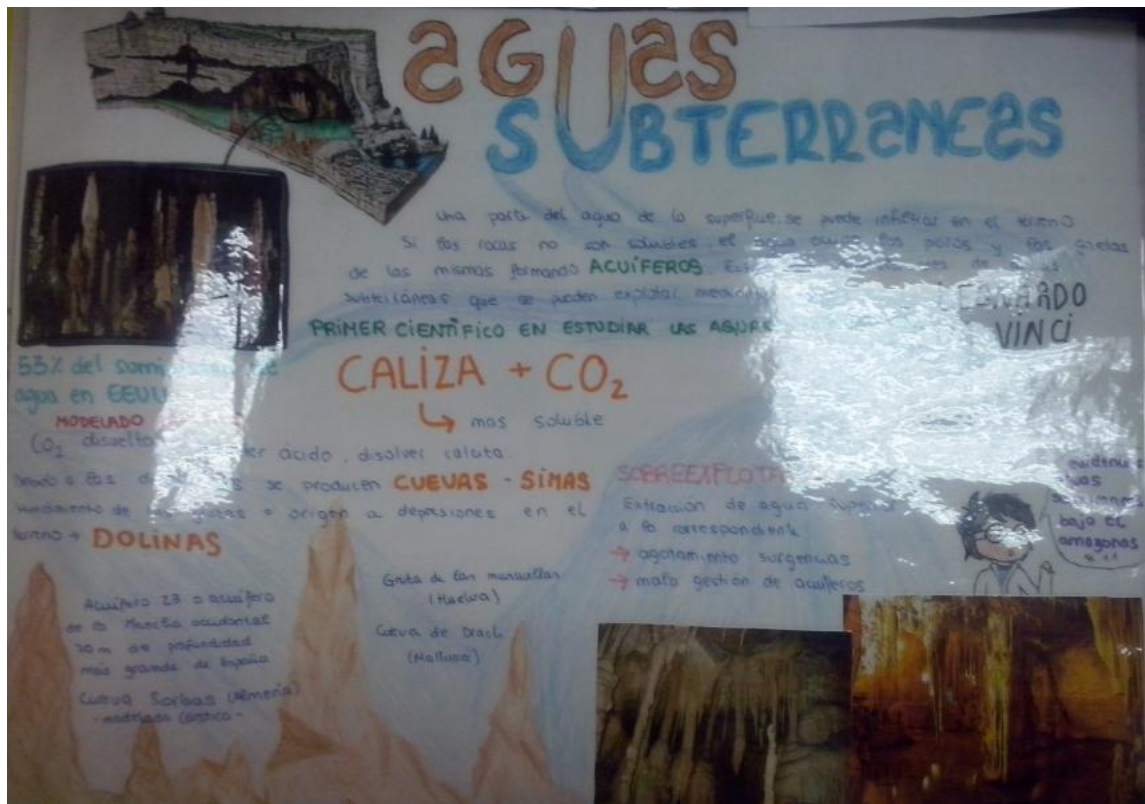 aGUas
SUBTERRaNEas
una parte del agua de la superficie, se puede infiltrar en el terreno
Si las rocas no son solubles, el agua ocupa los poros y las grietas
de las mismas formando ACUÍFEROS. de
subterráneas que se pueden explotar
PRIMER CIENTÍFICO EN ESTUDIAR LAS AGUAS
LEONARDO
VINCI
53% del de
agua en EEUU
CALIZA + CO₂
↳ mas soluble
MODELADO
CO₂ disuelto ácido, disolver caliza.
Debido a las se producen CUEVAS - SIMAS
hundimiento de grutas → origen a depresiones en el
terreno → DOLINAS
SOBREEXPLOTA
Extracción de agua superior
a la correspondiente
→ agotamiento surgencias
→ mala gestión de acuíferos
evidencias
bajo el
amazonas
Acuífero 23 o acuífero
de la Mancha occidental
70 m de profundidad
más grande de España
Cueva Sorbas (Almería)
- modelado cárstico -
Gruta de las maravillas
(Huelva)
Cueva de Drach
(Mallorca)